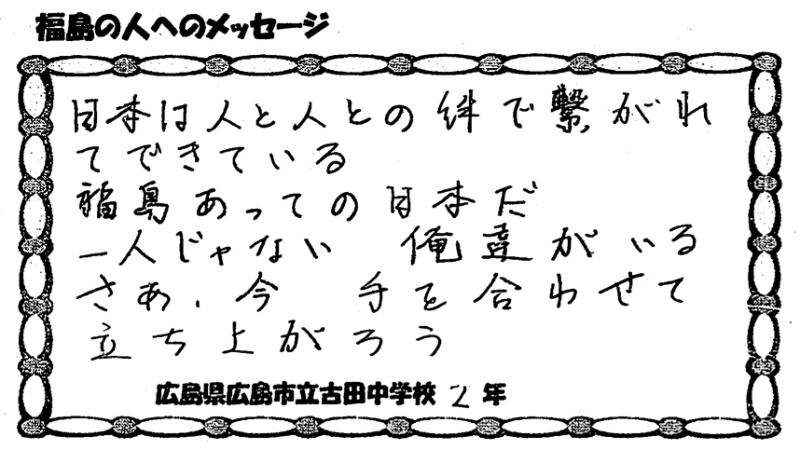 福島の人へのメッセージ
日本は人と人との絆で繋がれ
てできている
福島あっての日本だ
一人じゃない　俺達がいる
さあ、今　手を合わせて
立ち上がろう
広島県広島市立古田中学校 2 年